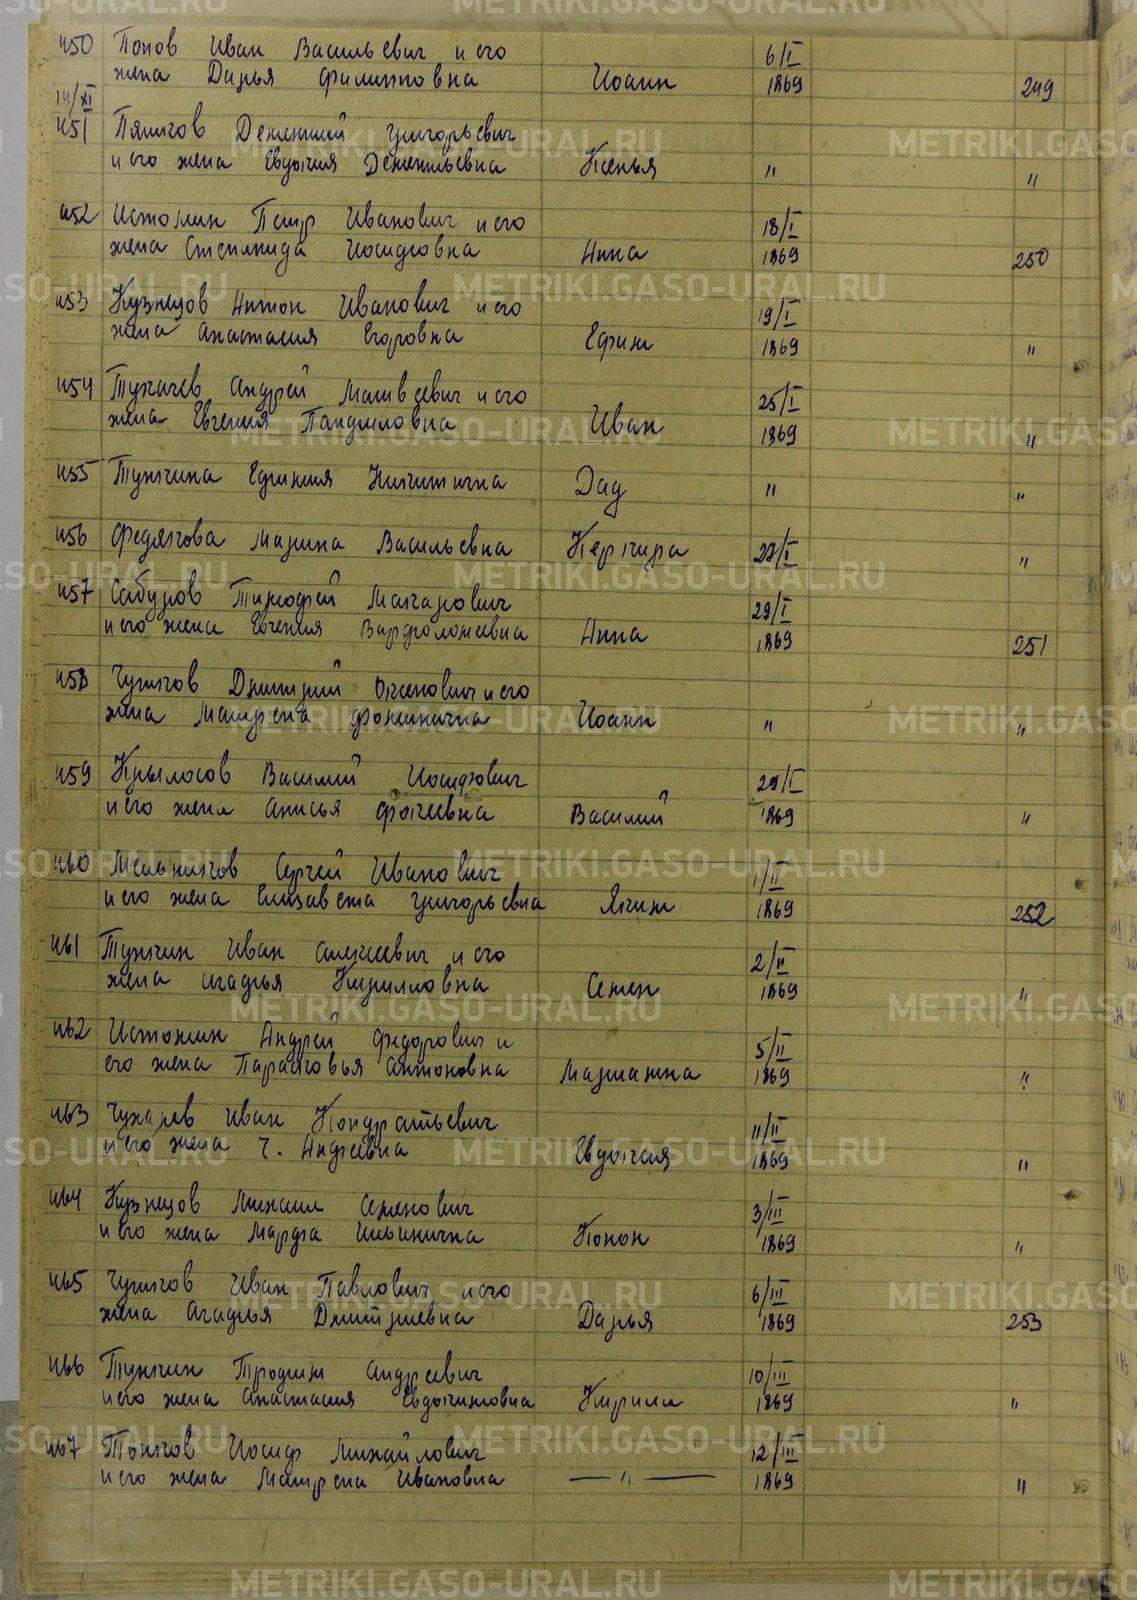 450 Попов Иван Васильевич и его
жена Дарья Филипповна Иоанн 6/I 1869 249
14/XI
451 Пятков Дементий Григорьевич
и его жена Евдокия Дементьевна Ксенья " "
452 Истомин Петр Иванович и его
жена Степанида Иосифовна Анна 18/I 1869 250
453 Кузнецов Антон Иванович и его
жена Анастасия Егоровна Ефим 19/I 1869 "
454 Тукачев Андрей Матвеевич и его
жена Евгения Панфиловна Иван 25/I 1869 "
455 Тункина Ефимия Никитична Дад " "
456 Федякова Марина Васильевна 27/I "
457 Сабуров Тимофей Макарович
и его жена Евгения Варфоломеевна Анна 29/I 1869 251
458 Чушков Дмитрий и его
жена Матрена Фоминична Иоанн " "
459 Крылосов Василий Иосифович
и его жена Анисья Фокеевна Василий 29/I 1869 "
460 Мельников Сергей Иванович
и его жена Елизавета Григорьевна Яким 1/II 1869 252
461 Тункин Иван Алексеевич и его
жена Агафья Кирилловна Семен 2/II 1869 "
462 Истомин Андрей Федорович и
его жена Парасковья Антоновна Мариамна 5/II 1869 "
463 Чухарев Иван Кондратьевич
и его жена Г. Андреевна Евдокия 11/II 1869 "
464 Кузнецов Михаил Семенович
и его жена Марфа Ильинична Конон 3/III 1869 "
465 Чушков Иван Павлович и его
жена Агафья Дмитриевна Дарья 6/III 1869 253
466 Тункин Трофим Андреевич
и его жена Анастасия Евдокимовна Кирилл 10/III 1869 "
467 Иосиф Михайлович
и его жена Матрена Ивановна — " — 12/III 1869 "
METRIKI.GASO-URAL.RU